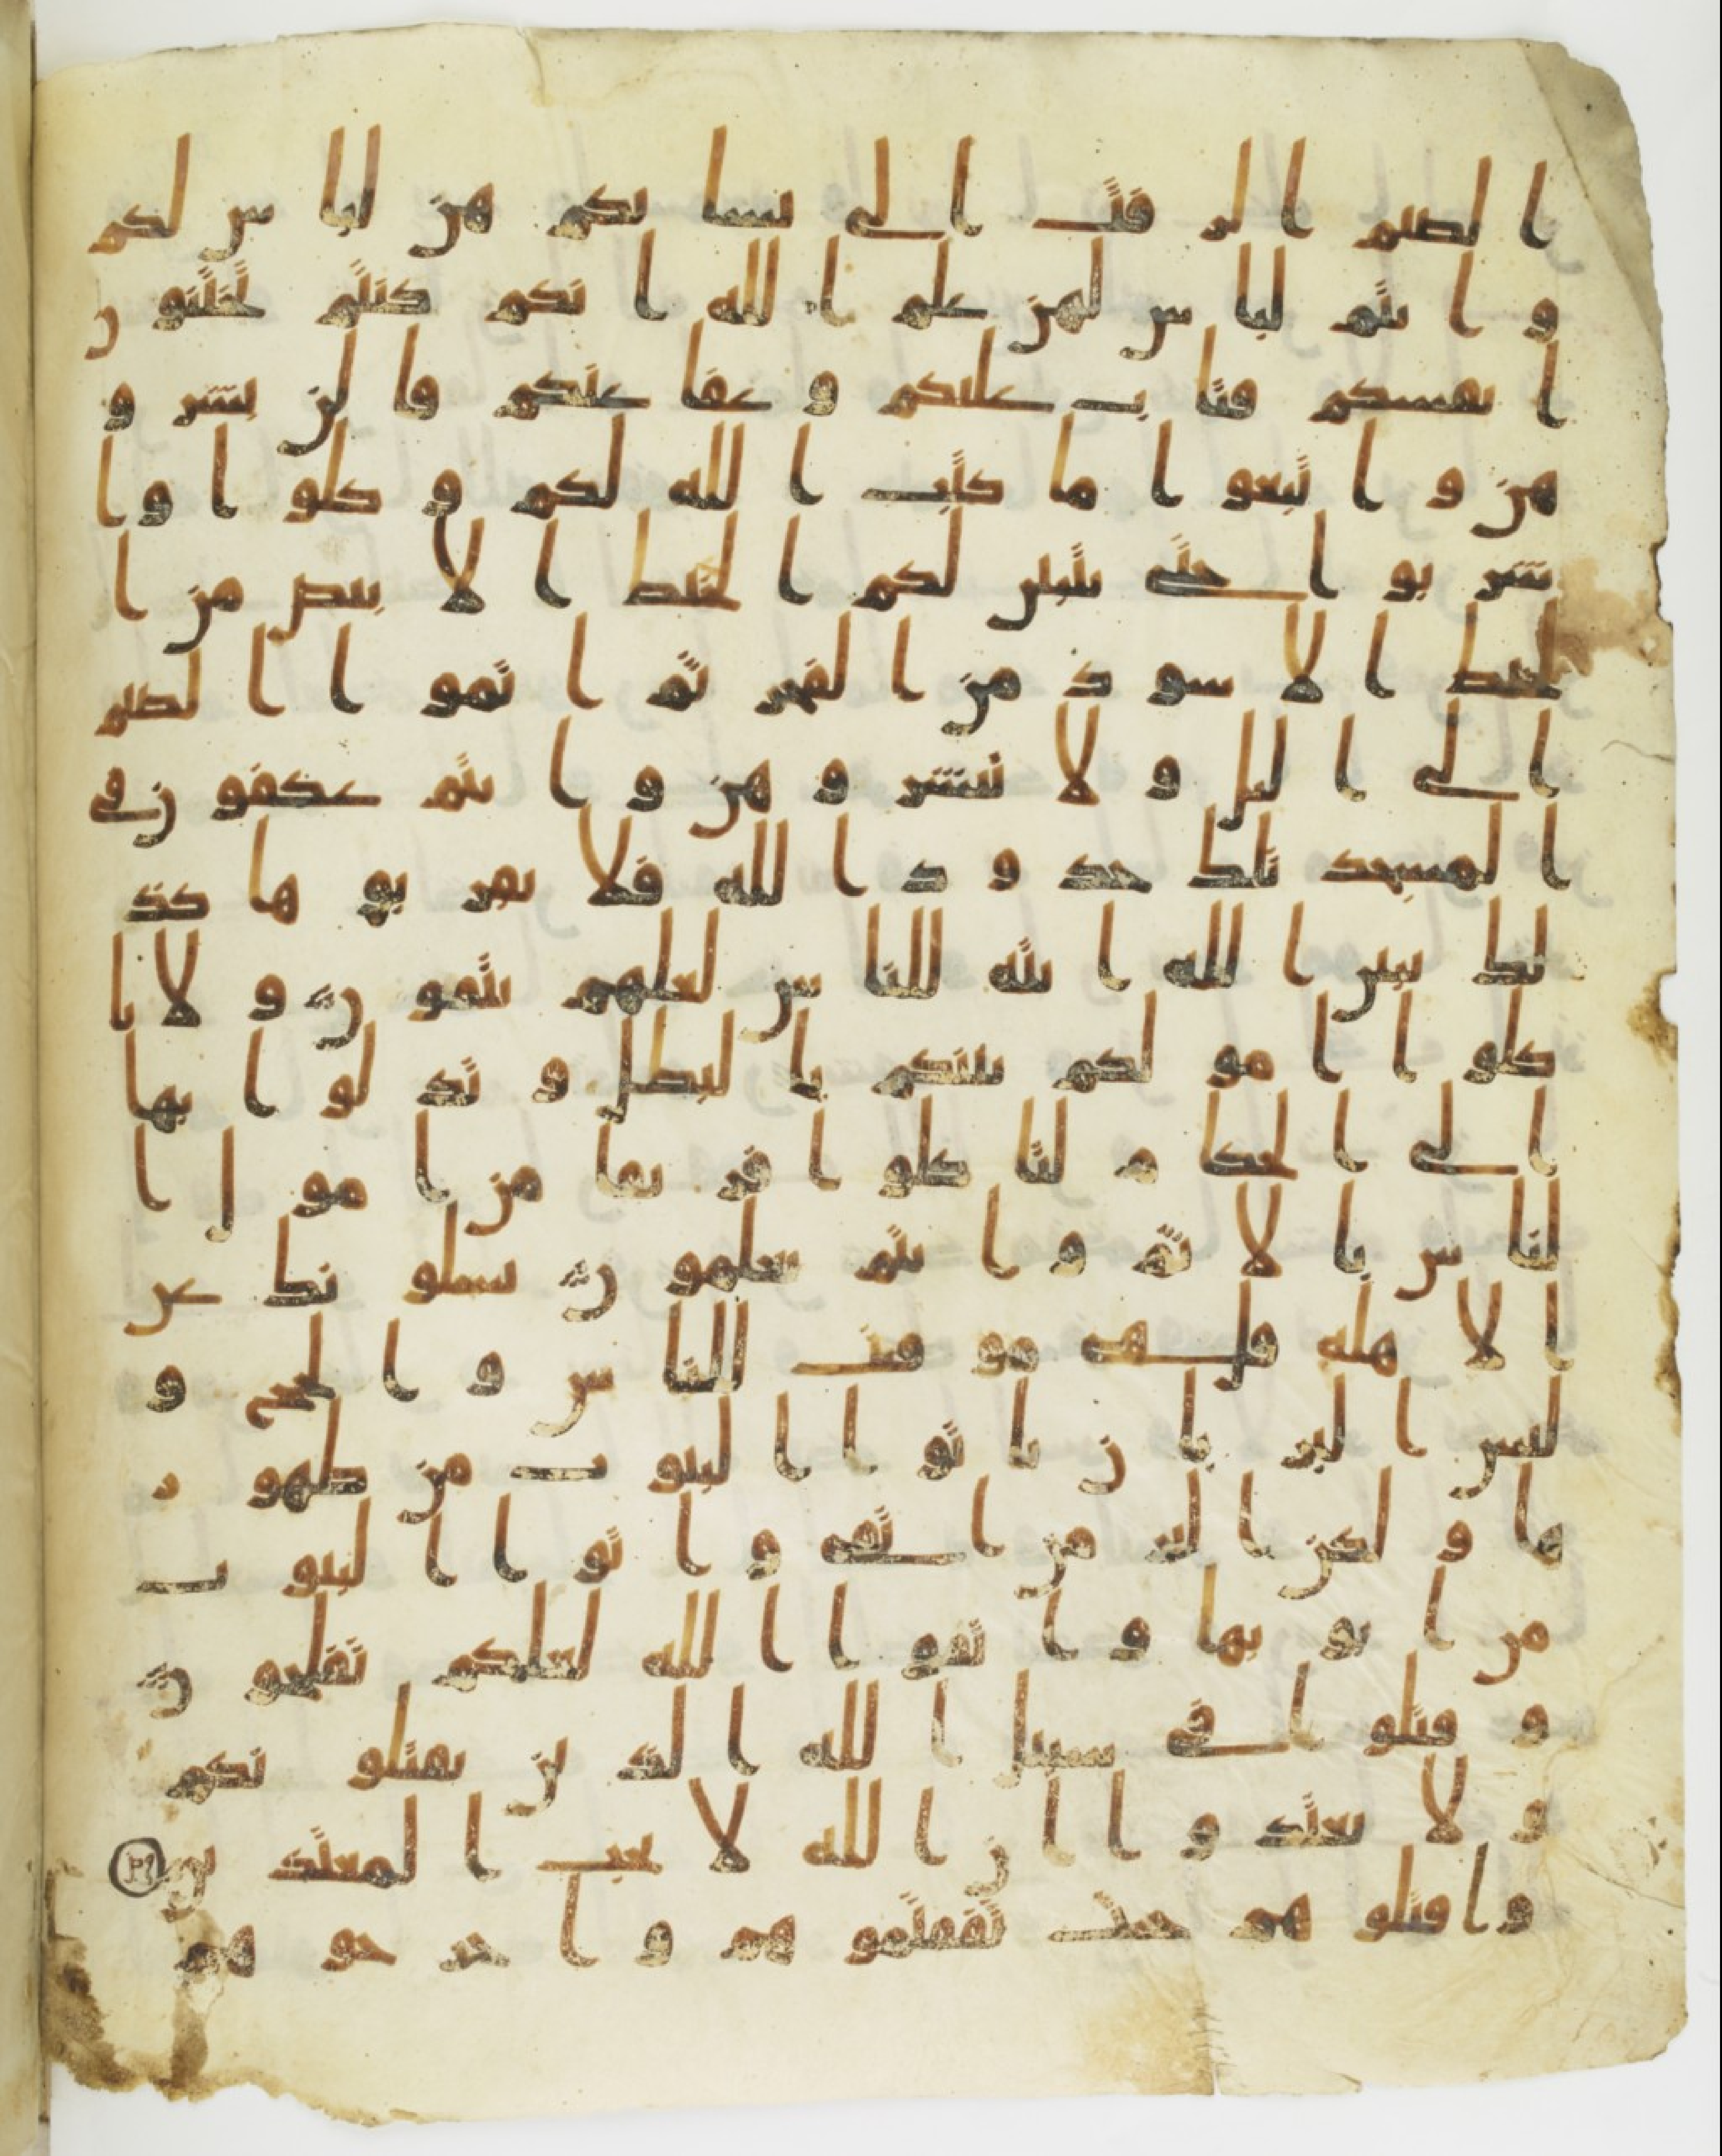 الصيم الرفث الى نسائكم هن لباس لكم
وانتم لباس لهن علم الله انكم كنتم تختنون
انفسكم فتاب عليكم وعفا عنكم فالن بشرو
هن وابتغوا ما كتب الله لكم وكلوا وا
شربوا حتى يتبين لكم الخيط الابيض من ا
لخيط الاسود من الفجر ثم اتموا الصيم
الى اليل ولا تبشروهن وانتم عكفون في
المسجد تلك حدود الله فلا تقربوها كذ
لك يبين الله ايته للناس لعلهم يتقون ولا تا
كلوا امولكم بينكم بالبطل وتدلوا بها
الى الحكام لتاكلوا فريقا من امول ا
لناس بالاثم وانتم تعلمون يسلونك عن
الاهله قل هي موقيت للناس والحج و
ليس البر بان تاتوا البيوت من ظهور
ها ولكن البر من اتقى واتوا البيوت
من ابوبها واتقوا الله لعلكم تفلحون
وقتلوا في سبيل الله الذين يقتلونكم
ولا تعتدوا ان الله لا يحب المعتدين
واقتلوهم حيث ثقفتموهم واخرجوهم